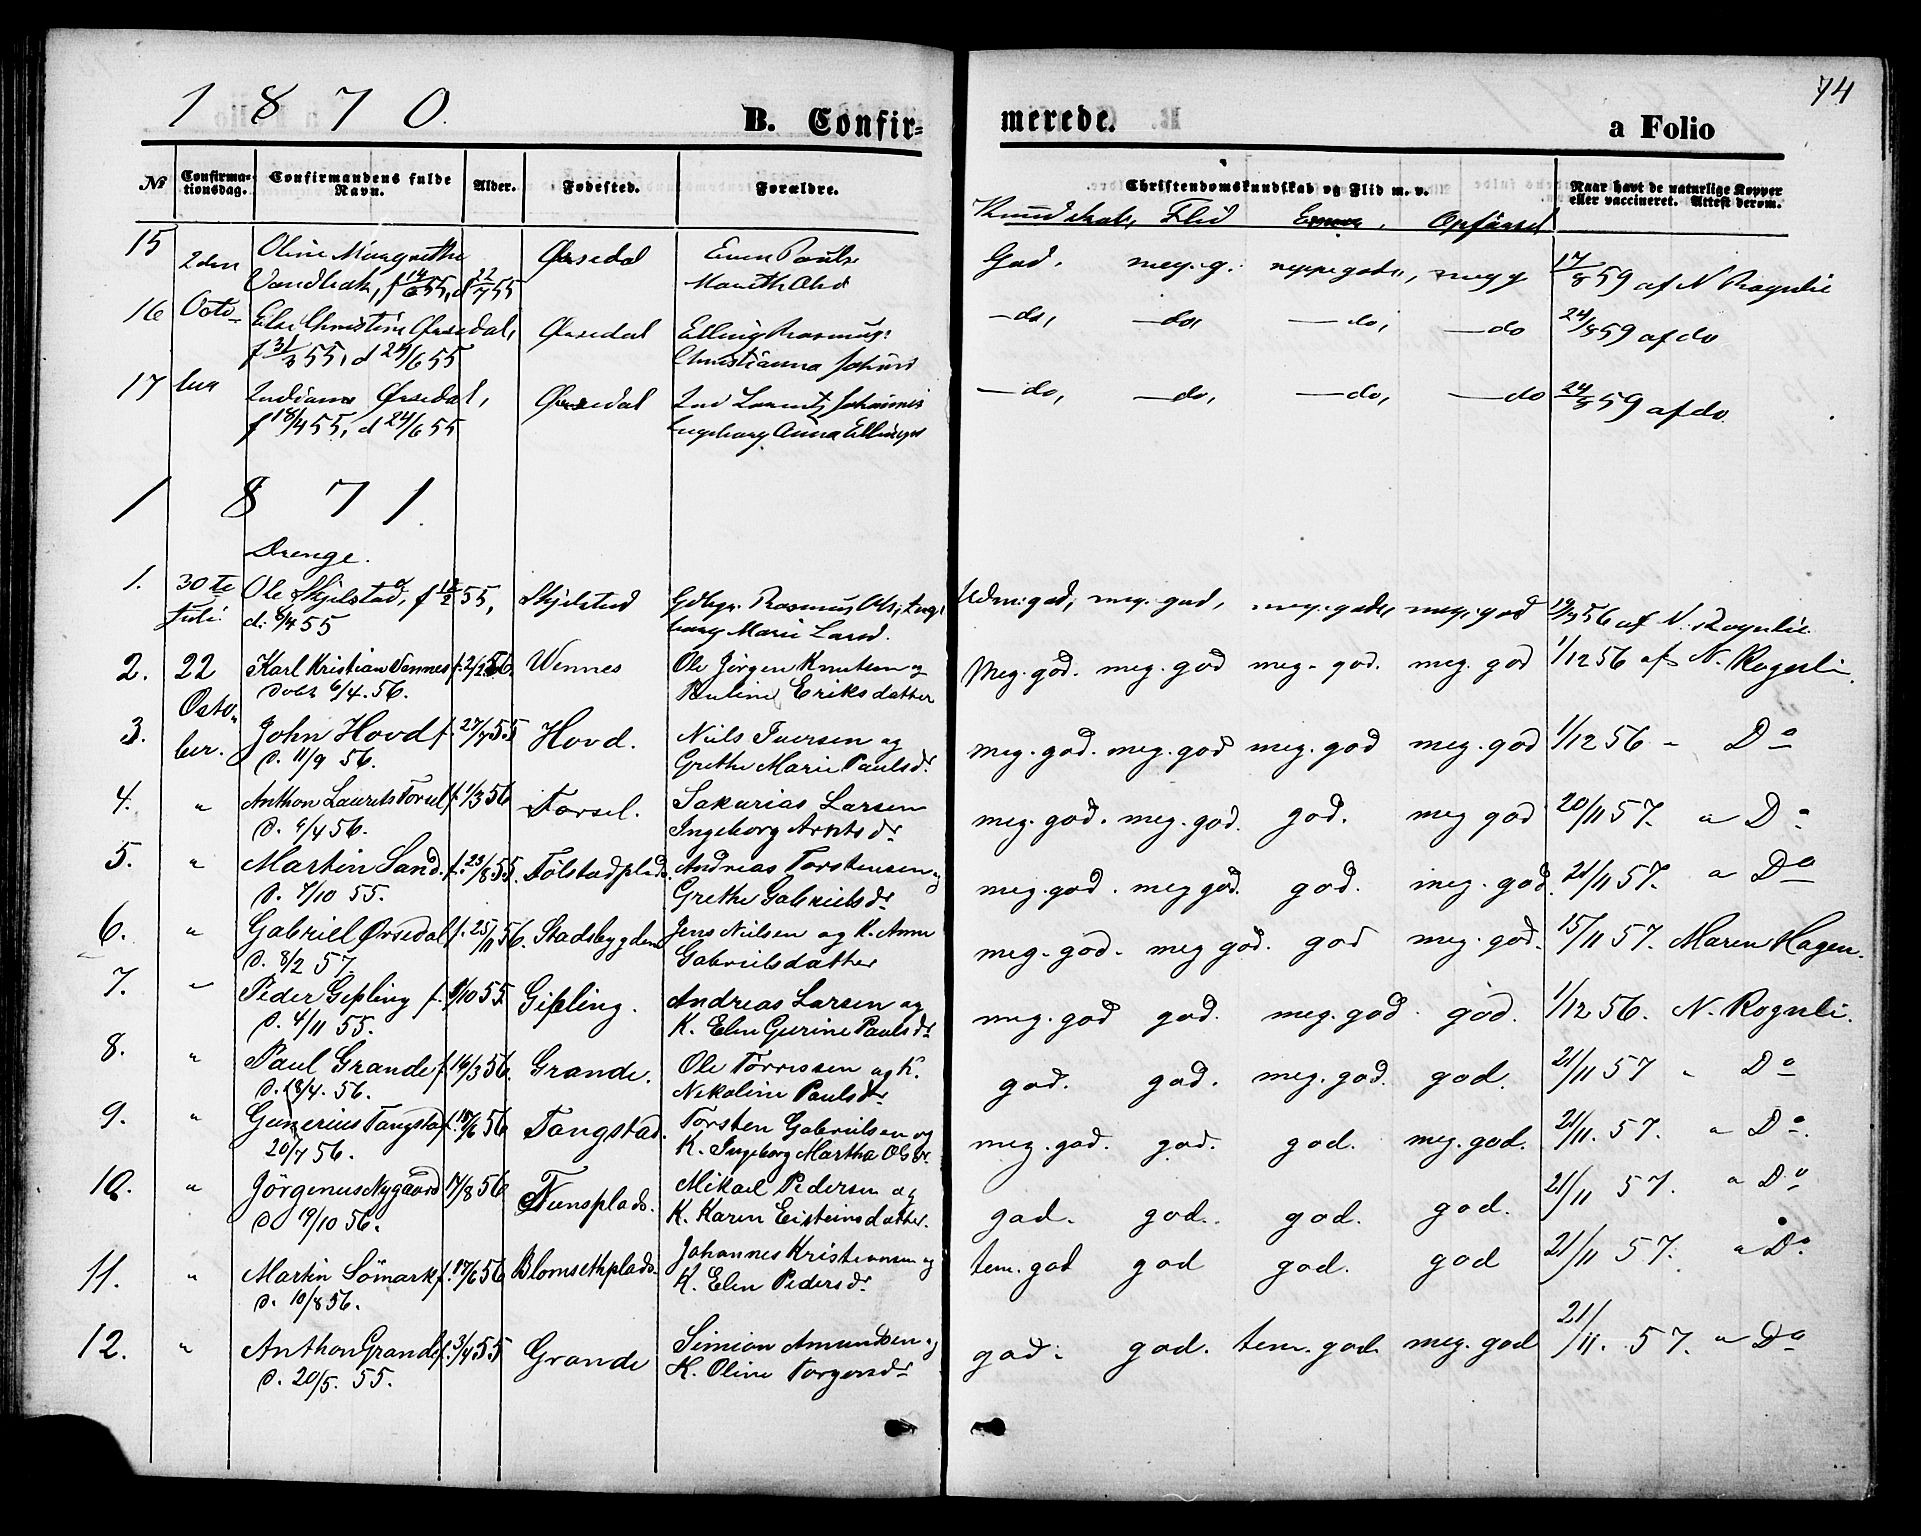 74
1870.
B. Confirmerede.
a Folio
No Confirmationsdag. Confirmandens fulde Navn. Alder. Fødested. Forældre. Christendomskundskab og Flid m. v. Naar havt de naturlige Kopper eller vaccineret. Attest derom.
Kundskab, Flid Evner, Opførsel
15 2den Oline Margrethe Ørsedal Even Pauls. God, meg. g. neppe gode, meg g 17/8 59 af N Rognlie
f 14/6 55, d 22/7 55 Marith Olsd
16 Octo- Else Christine Ørsedal, Ørsedal Elling Rasmus: —do, —do, —do, —do 24/8 59 af do
f 31/3 55, d 24/6 55 Christianna Johnsd
17 ber Ørsedal, Ørsedal —do, —do, —do, —do 24/8 59 af do.
f 18/4 55, d 24/6 55 Ingeborg Anna Ellingsd
1871.
Drenge.
1. 30te Ole Skjelstad, f 12/2 55, Skjelstad Gdbgr. Rasmus Ols, Inge- Udm: god, meg. god, meg. gode, meg. god 56 af N. Rognlie
Juli. d. 6/4 55 borg Marie Larsd.
2. 22 Karl Kristian Vennes f. 56. Wennes Ole Jörgen Knutsen og Meg. god. meg. god meg. god. meg. god 1/12 56 af N. Rognli.
Octo- Döbt 6/4. 56. Pauline Eriksdatter
3. ber. John Hovd f. 27/7 55 Hovd. Niels Iversen og meg. god. meg. god meg. god meg. god 1/12 56 " Do
d. 11/9 56. Grethe Marie Paulsdr.
4. " Anthon Laurits Forsel f. 1/3 56 Forsel. Sakarias Larsen meg. god. meg. god. god. meg god 20/11 57. " Do
d. 6/4 56. Ingeborg Arntsdr
5. " Martin Sand. f. 23/8 55. Tölstadplads. Andreas Torstensen og meg. god. meg god. god. meg. god. 21/11 57. " Do
d. 7/10 55. Grethe Gabrielsdr
6. " Gabriel Ørsedal f. 25/11 56. Stadsbygden Jens Nielsen og K. Anne meg. god. meg god. god meg. god. 15/11 57. Maren Hagen.
d. 8/2 57. Gabrielsdatter
7. " Peder Gipling f. 9/10 55. Gipling. Andreas Larsen og meg. god god. meg. god. god. 1/12 56. N. Rognli.
d. 4/11 55. K. Elen Gurine Paulsdr
8. " Paul Grande f. 16/3 56. Grande. Ole Torressen og K. god. god. meg. god. god. 21/11 57 " Do
d. 18/4. 56. Nikoline Paulsdr
9. " Gunerius Tangstad f. 18/6 56 Tangstad. Torsten Gabrielsen og meg. god. god. god. meg. god. 21/11. 57. " Do.
20/7 56. K. Ingeborg Martha Olsdr.
10. " Jörgenus Nygaard 17/8 56 Fensplads. Mikael Pedersen og god. god. god. god. 21/11 57. " Do
d 19/10 56. K. Karen Eisteinsdatter.
11. " Martin Sömark f. 17/6 56 Blomsethplads. Johannes Kristensen og tem. god god god. god 21/11 57. " Do.
d. 10/8 56. K. Elen Pedersdr
12. " Anthon Grande f. 3/4 55 Grande Simion Amundsen og god. god. tem. god. meg. god 21/11. 57. " Do
d. 20/5. 55. K. Oline Torgersdr